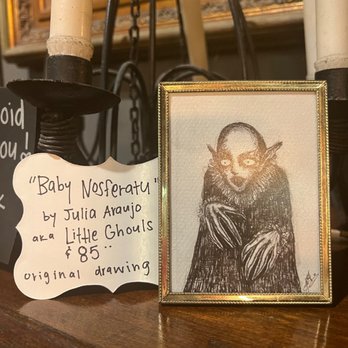 oid
ou!
"Baby Nosferatu"
by Julia Araujo
aka Little Ghouls
$85
original drawing